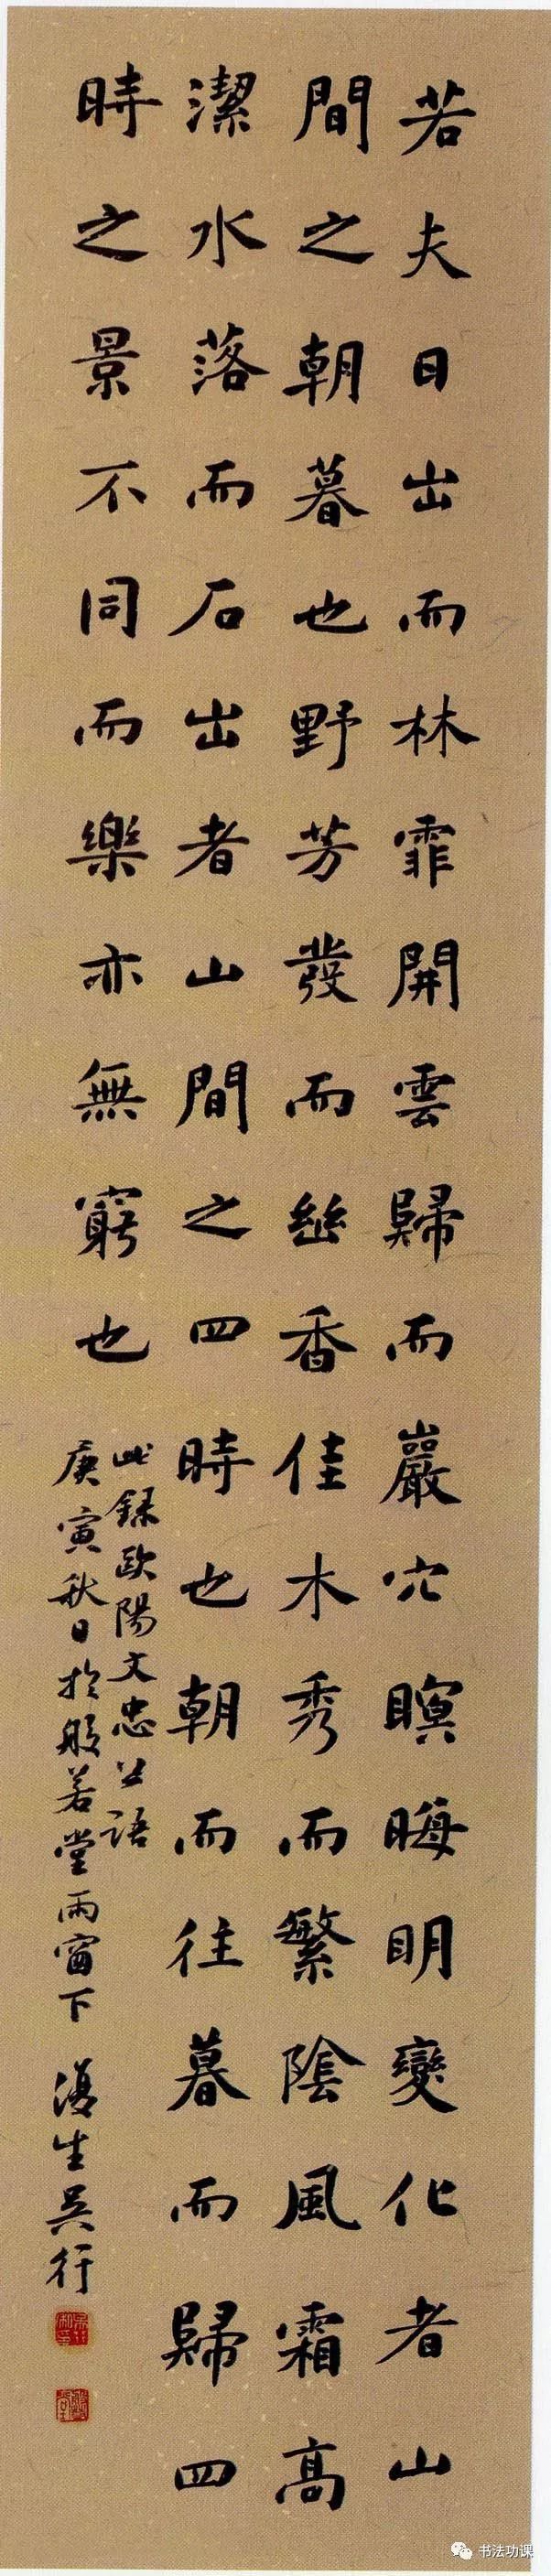 若夫日出而林霏開雲歸而巖穴暝晦明變化者山
間之朝暮也野芳發而幽香佳木秀而繁陰風霜高
潔水落而石出者山間之四時也朝而往暮而歸四
時之景不同而樂亦無窮也
此録歐陽文忠公語
庚寅秋日於般若堂雨窗下
復生吳行
书法功课